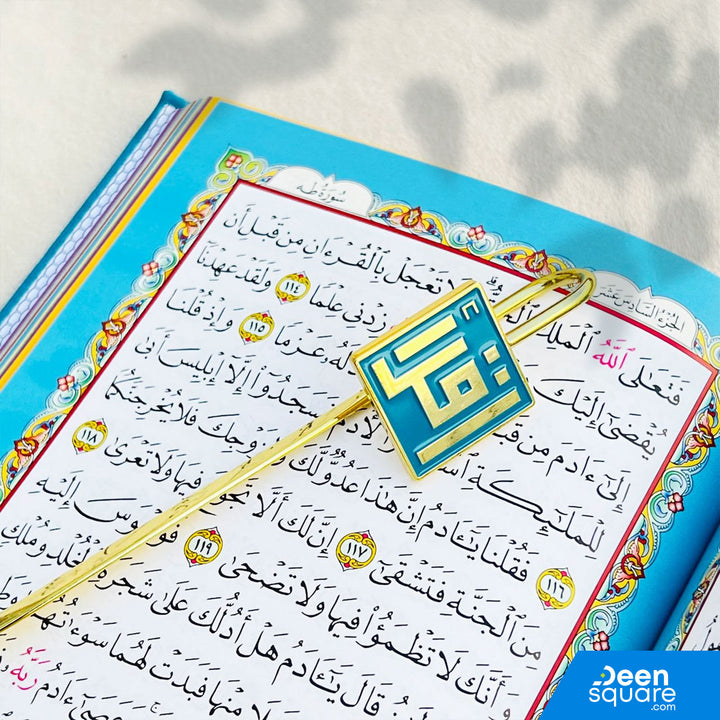 سُورَةُ طه
الجُزءُ السَّادِسَ عَشَرَ
فَتَعَٰلَى ٱللَّهُ ٱلْمَلِكُ لَا تَعْجَلْ بِٱلْقُرْءَانِ مِن قَبْلِ أَن
يُقْضَىٰٓ إِلَيْكَ زِدْنِى عِلْمًا ١١٤ وَلَقَدْ عَهِدْنَآ
إِلَىٰٓ ءَادَمَ مِن لَهُۥ عَزْمًا ١١٥ وَإِذْ قُلْنَا
لِلْمَلَٰٓئِكَةِ لِأٓدَمَ سَجَدُوٓا۟ إِلَّآ إِبْلِيسَ أَبَىٰ
١١٦ فَقُلْنَا يَٰٓـَٔادَمُ إِنَّ هَٰذَا عَدُوٌّ لَّكَ وَلِزَوْجِكَ فَلَا يُخْرِجَنَّكُمَا
مِنَ ٱلْجَنَّةِ فَتَشْقَىٰٓ ١١٧ إِنَّ لَكَ أَلَّا تَجُوعَ فِيهَا وَلَا تَعْرَىٰ ١١٨
وَأَنَّكَ لَا تَظْمَؤُا۟ فِيهَا وَلَا تَضْحَىٰ ١١٩ فَوَسْوَسَ إِلَيْهِ
قَالَ يَٰٓـَٔادَمُ هَلْ أَدُلُّكَ عَلَىٰ شَجَرَةِ ٱلْخُلْدِ وَمُلْكٍ
مِنْهَا فَبَدَتْ لَهُمَا سَوْءَٰتُهُمَا
ءَادَمُ رَبَّهُۥ
Deen
square
.com